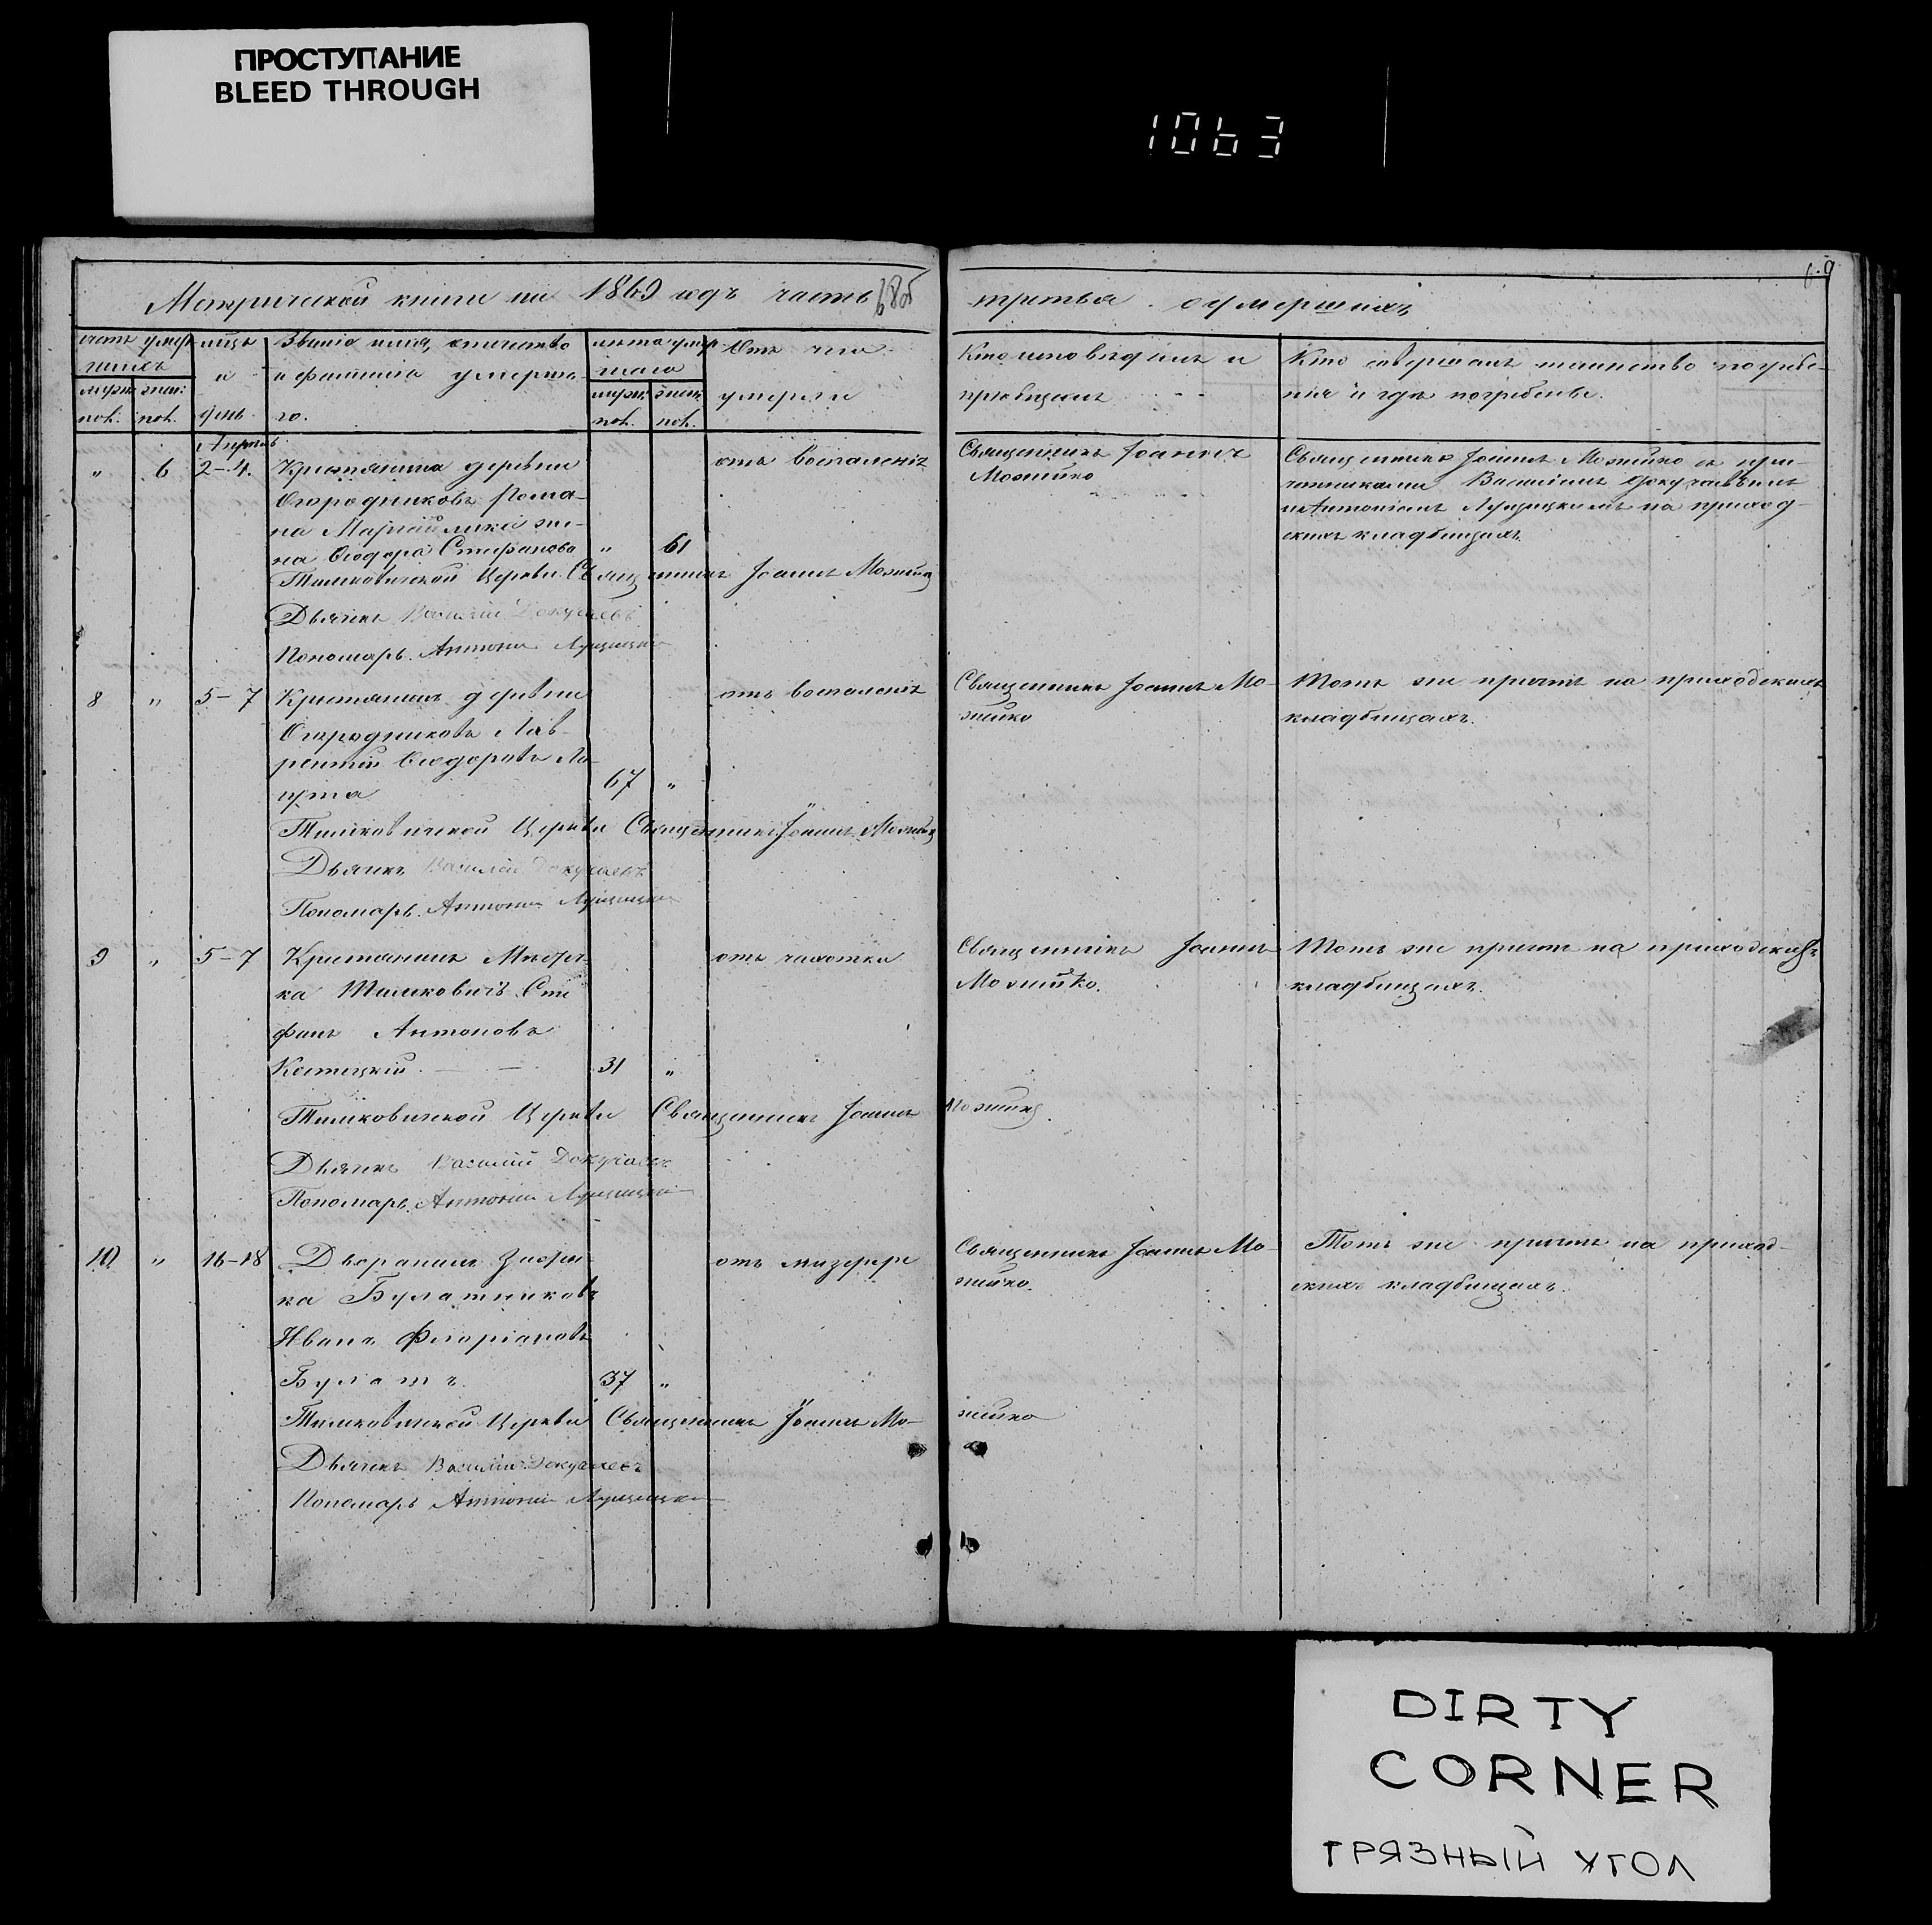 ПРОСТУПАНИЕ
BLEED THROUGH
1063
Метрической книги на 1869 годъ часть
третья о умершихъ
69
Званіе имя, отчество
и фамилія умерша-
го.
Отъ чего
умерли
Кто исповѣдалъ и
Кто совершалъ таинство погребе-
нія и гдѣ погребены.
муж. жен. день муж. жен.
пол. пол. пол. пол.
Апрѣль
" 6 2-4. Крестьянка деревни
Огородниковъ Рома-
на же-
на Ѳеодора Стефанова " 61
отъ воспаленія
Священникъ Іоаннъ
Можейко
Священникъ Іоаннъ Можейко съ при-
четниками Василіемъ Докучаевымъ
и Антоніемъ на приход-
скихъ кладбищахъ.
Тимковичской Церкви Священникъ Іоаннъ Можейко
Дьячекъ Василій Докучаевъ
Пономарь Антоній
8 " 5-7 Крестьянинъ деревни
Огородниковъ Лав-
рентій Ѳеодоровъ Ла-
67 "
отъ воспаленія
Священникъ Іоаннъ Мо-
жейко
Тотъ же причтъ на приходскихъ
кладбищахъ.
Тимковичской Церкви Священникъ Іоаннъ Можейко
Дьячекъ Василій Докучаевъ
Пономарь Антоній
9 " 5-7 Крестьянинъ Мѣстеч-
ка Тимковичъ Сте
фанъ Антоновъ
Костецкій 31 "
отъ чахотки
Священникъ Іоаннъ
Можейко.
Тотъ же причтъ на приходскихъ
кладбищахъ.
Тимковичской Церкви Священникъ Іоаннъ Можейко
Дьячекъ Василій Докучаевъ
Пономарь Антоній
10 " 16-18 Дворянинъ
ка Булатниковъ
Иванъ Флоріановъ
Булатъ 37 "
отъ мизерере
Священникъ Іоаннъ Мо-
жейко.
Тотъ же причтъ на приход-
скихъ кладбищахъ.
Тимковичской Церкви Священникъ Іоаннъ Можейко
Дьячекъ Василій Докучаевъ
Пономарь Антоній
DIRTY
CORNER
ГРЯЗНЫЙ УГОЛ